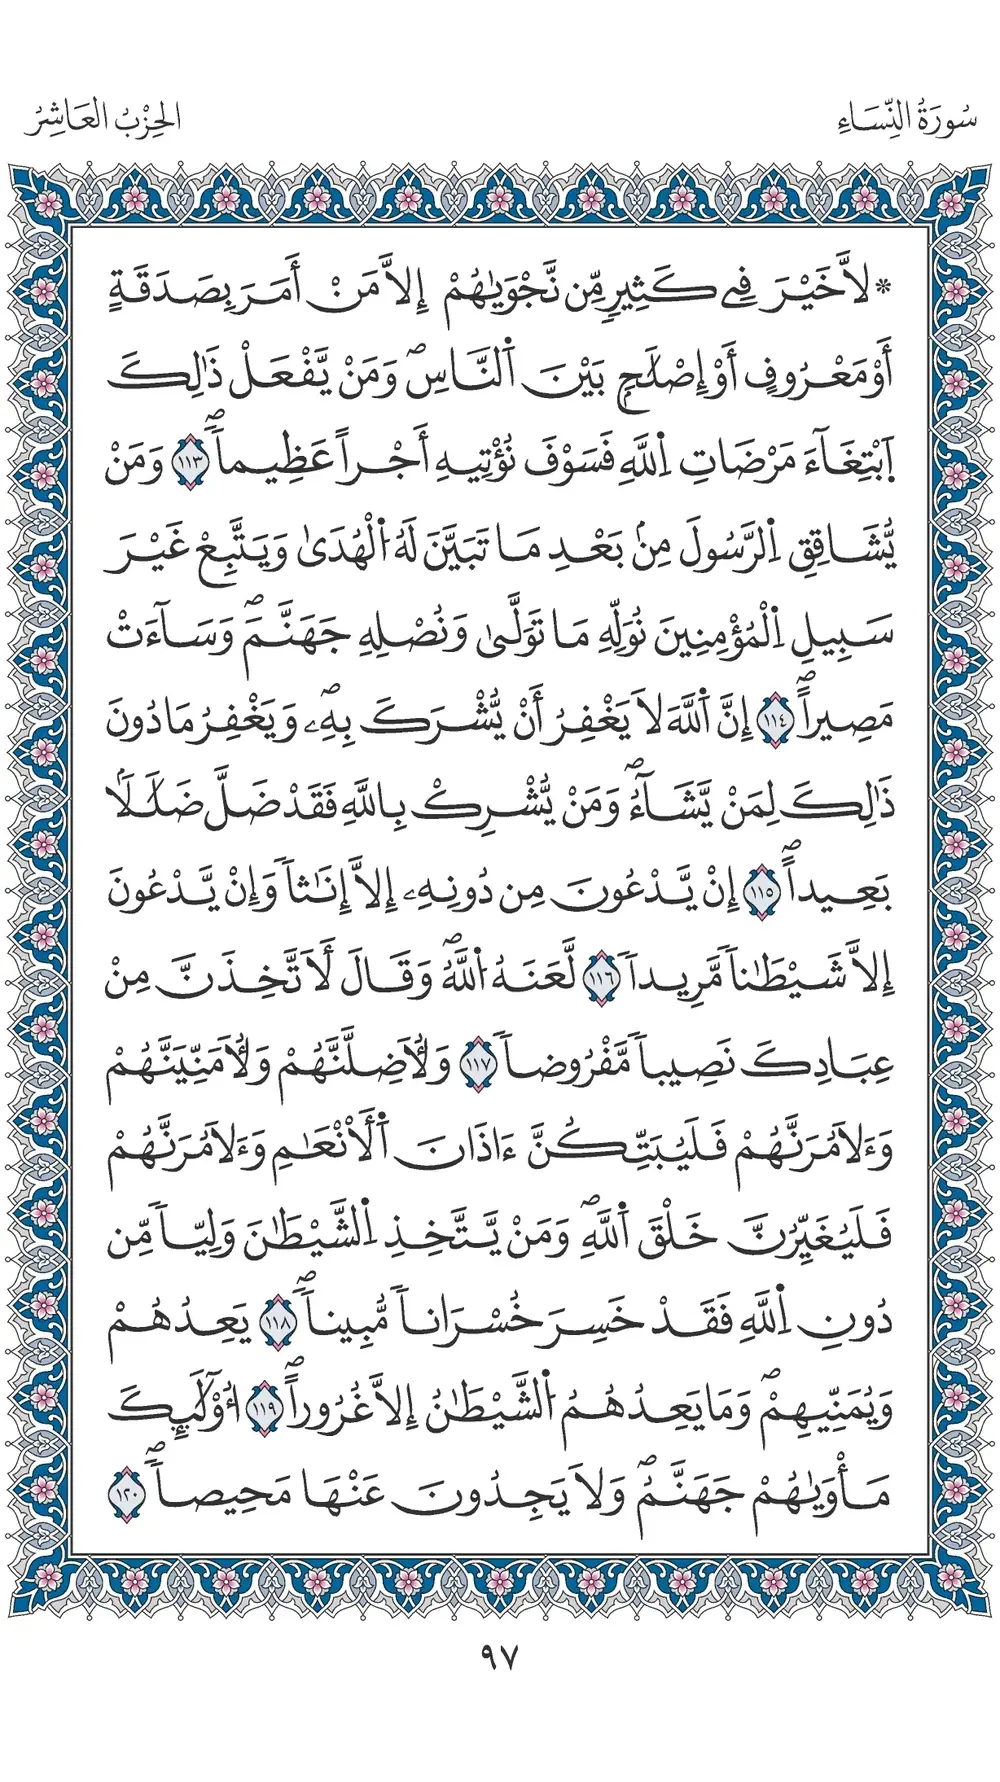 سُورَةُ النِّسَاءِ
الحِزْبُ العَاشِرُ
* لَّا خَيْرَ فِے كَثِيرٖ مِّن نَّجْوَيٰهُمُۥٓ إِلَّا مَنْ أَمَرَ بِصَدَقَةٍ
أَوْ مَعْرُوفٍ أَوْ إِصْلَٰحِۢ بَيْنَ اَ۬لنَّاسِۖ وَمَنْ يَّفْعَلْ ذَٰلِكَ
اَ۪بْتِغَآءَ مَرْضَاتِ اِ۬للَّهِ فَسَوْفَ نُؤْتِيهِ أَجْراً عَظِيماٗۖ ١١٣ وَمَنْ
يُّشَاقِقِ اِ۬لرَّسُولَ مِنۢ بَعْدِ مَا تَبَيَّنَ لَهُ اُ۬لْهُدَىٰ وَيَتَّبِعْ غَيْرَ
سَبِيلِ اِ۬لْمُؤْمِنِينَ نُوَلِّهِۦ مَا تَوَلَّىٰ وَنُصْلِهِۦ جَهَنَّمَۖ وَسَآءَتْ
مَصِيراًۖ ١١٤ إِنَّ اَ۬للَّهَ لَا يَغْفِرُ أَنْ يُّشْرَكَ بِهِۦۖ وَيَغْفِرُ مَا دُونَ
ذَٰلِكَ لِمَنْ يَّشَآءُۖ وَمَنْ يُّشْرِكْ بِاللَّهِ فَقَدْ ضَلَّ ضَلَٰلَاۢ
بَعِيداًۖ ١١٥ إِنْ يَّدْعُونَ مِن دُونِهِۦٓ إِلَّآ إِنَٰثاٗ وَإِنْ يَّدْعُونَ
إِلَّا شَيْطَٰناٗ مَّرِيداٗ ١١٦ لَّعَنَهُ اُ۬للَّهُۖ وَقَالَ لَأَتَّخِذَنَّ مِنْ
عِبَادِكَ نَصِيباٗ مَّفْرُوضاٗ ١١٧ وَلَأُضِلَّنَّهُمْ وَلَأُمَنِّيَنَّهُمْ
وَءَلَامُرَنَّهُمْ فَلَيُبَتِّكُنَّ ءَاذَانَ اَ۬لْأَنْعَٰمِ وَءَلَامُرَنَّهُمْ
فَلَيُغَيِّرُنَّ خَلْقَ اَ۬للَّهِۖ وَمَنْ يَّتَّخِذِ اِ۬لشَّيْطَٰنَ وَلِيّاٗ مِّن
دُونِ اِ۬للَّهِ فَقَدْ خَسِرَ خُسْرَاناٗ مُّبِيناٗۖ ١١٨ يَعِدُهُمْ
وَيُمَنِّيهِمْۖ وَمَا يَعِدُهُمُ اُ۬لشَّيْطَٰنُ إِلَّا غُرُوراًۖ ١١٩ أُوْلَٰٓئِكَ
مَأْوَيٰهُمْ جَهَنَّمُۖ وَلَا يَجِدُونَ عَنْهَا مَحِيصاٗۖ ١٢٠
٩٧